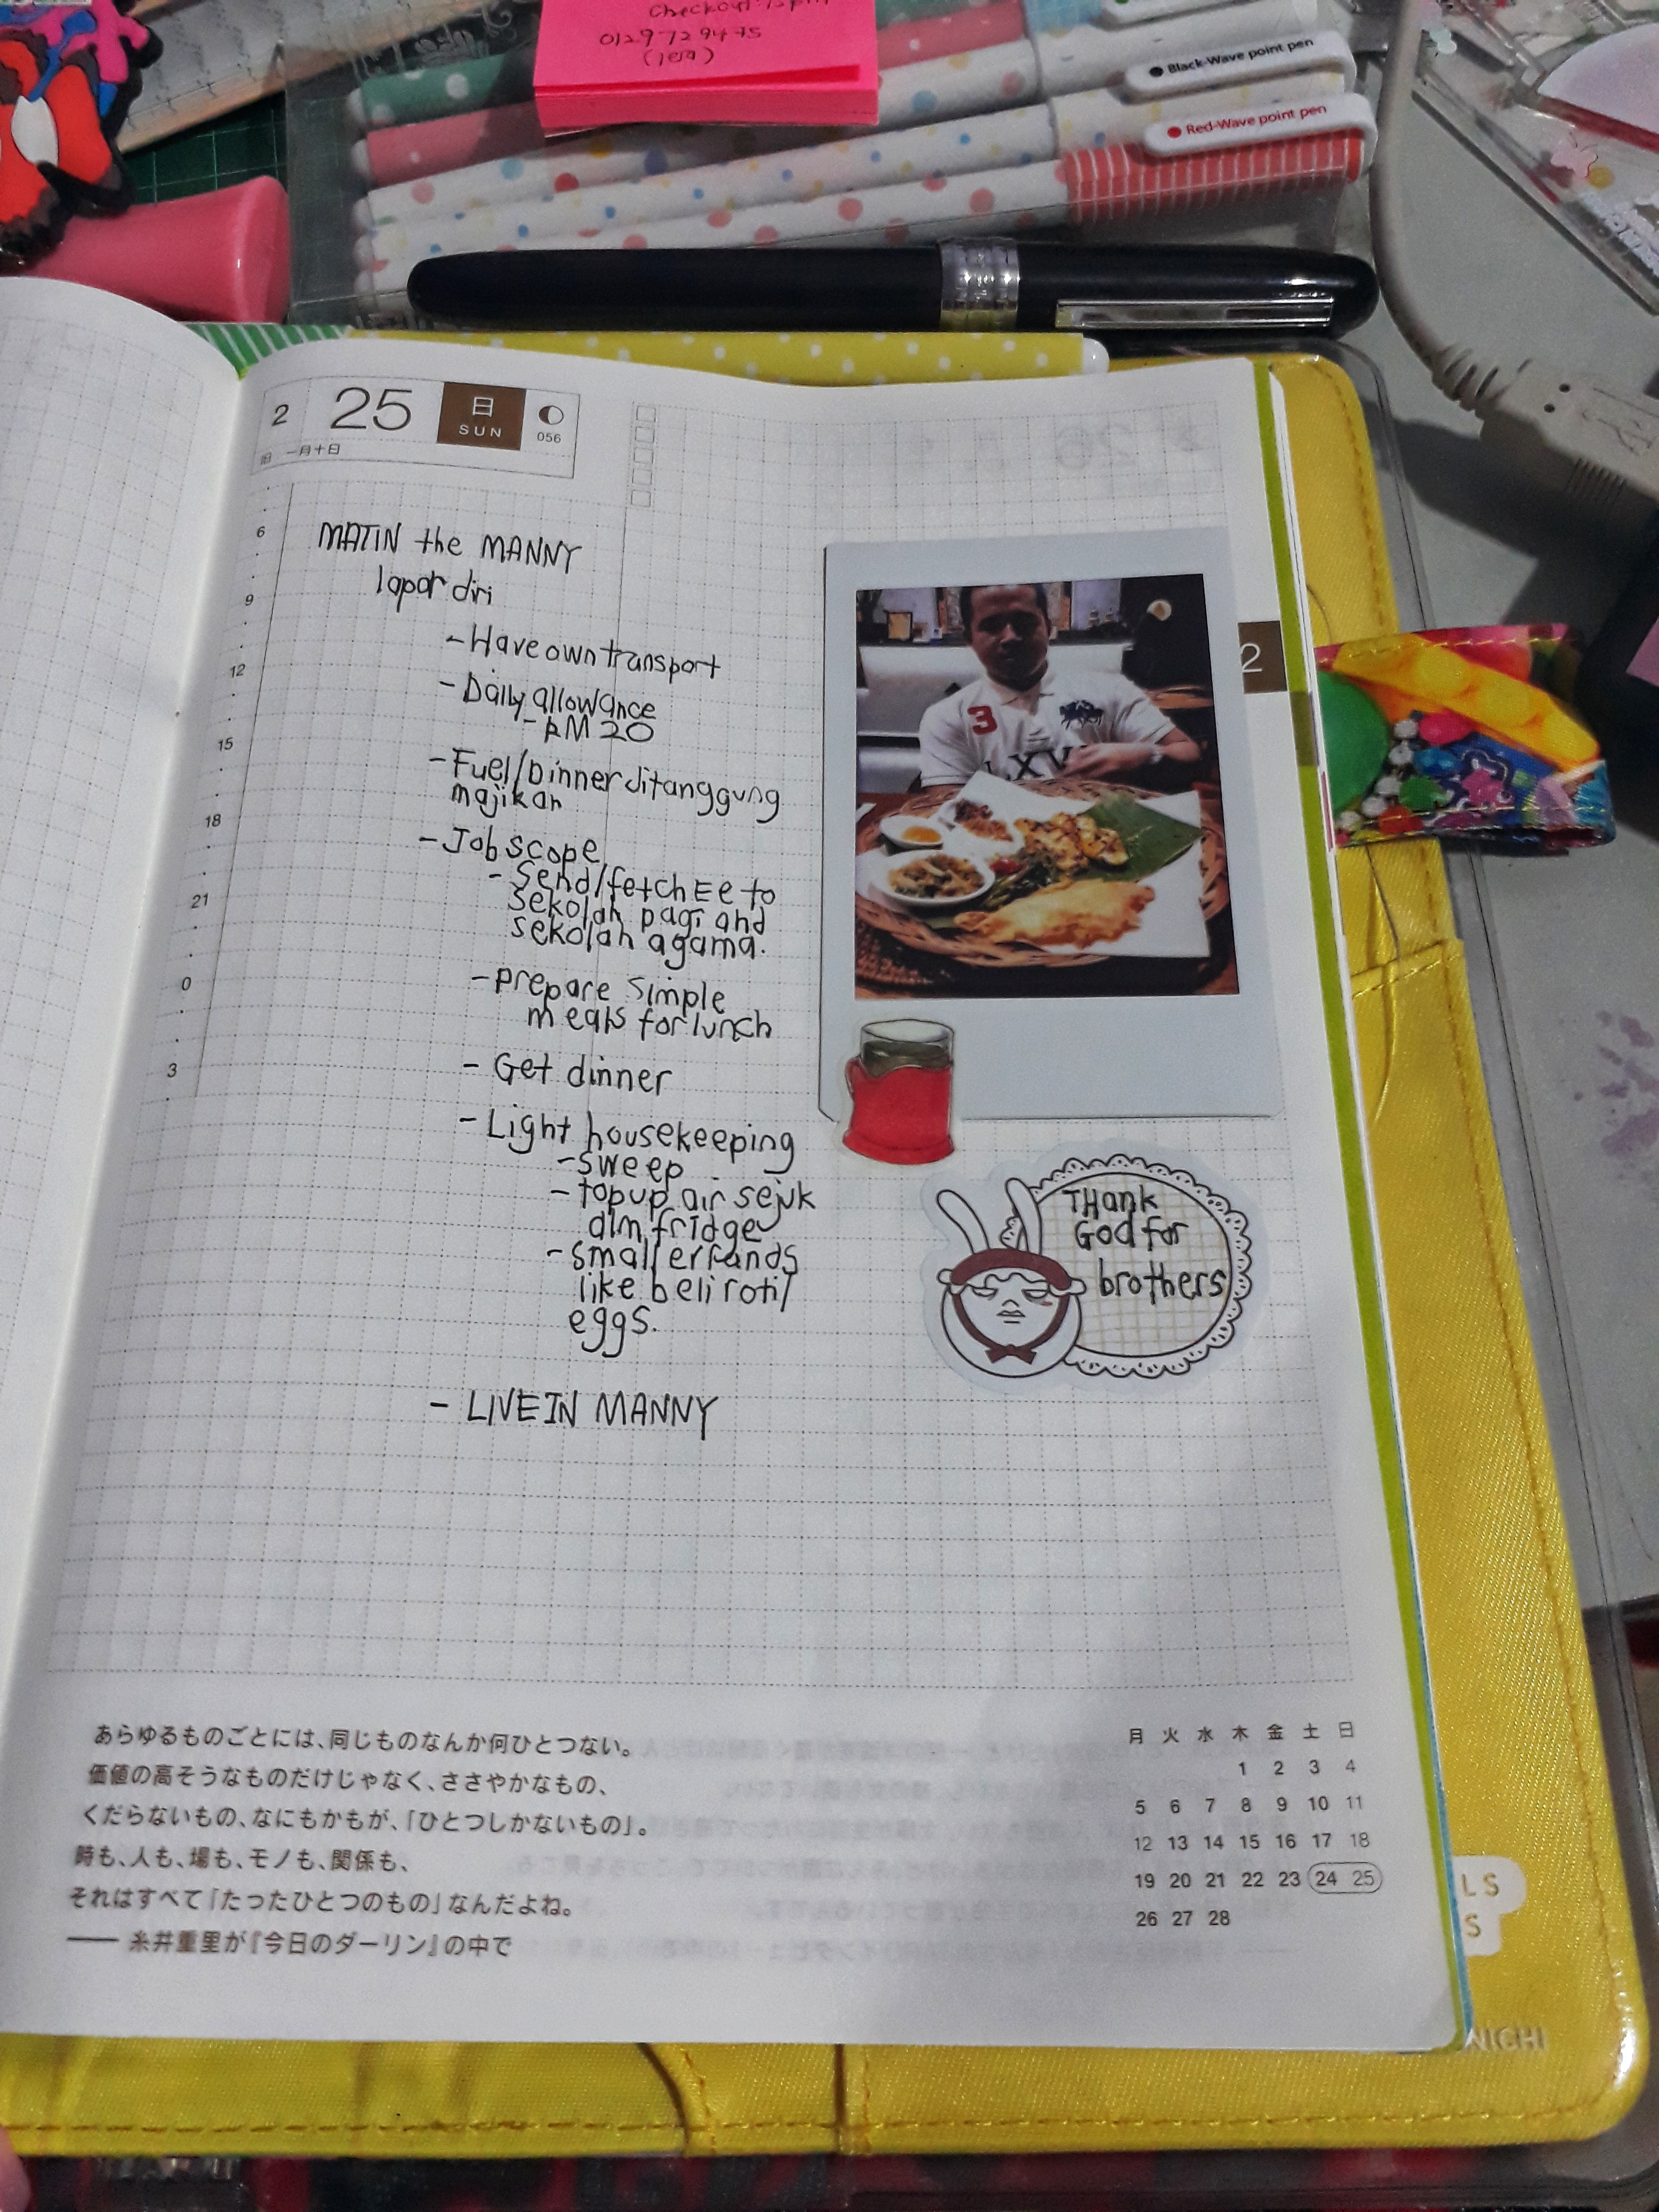 checkout: 12pm
0129729475
Black-Wave point pen
Red-Wave point pen
2 25 日 SUN
056
旧 一月十日
6
9
12
15
18
21
0
3
MATIN the MANNY
lapor diri
- Have own transport
- Daily allowance
- RM 20
- Fuel/Dinner ditanggung
majikan
- Job scope
- Send/fetch EE to
sekolah pagi and
sekolah agama.
- prepare simple
meals for lunch
- Get dinner
- Light housekeeping
- sweep
- top up air sejuk
dlm fridge
- small errands
like beli roti/
eggs.
- LIVE IN MANNY
3
LXV
2
THank
God for
brothers
あらゆるものごとには、同じものなんか何ひとつない。
価値の高そうなものだけじゃなく、ささやかなもの、
くだらないもの、なにもかもが、「ひとつしかないもの」。
時も、人も、場も、モノも、関係も、
それはすべて「たったひとつのもの」なんだよね。
—— 糸井重里が『今日のダーリン』の中で
月 火 水 木 金 土 日
1 2 3 4
5 6 7 8 9 10 11
12 13 14 15 16 17 18
19 20 21 22 23 24 25
26 27 28
LS
S
NICHI